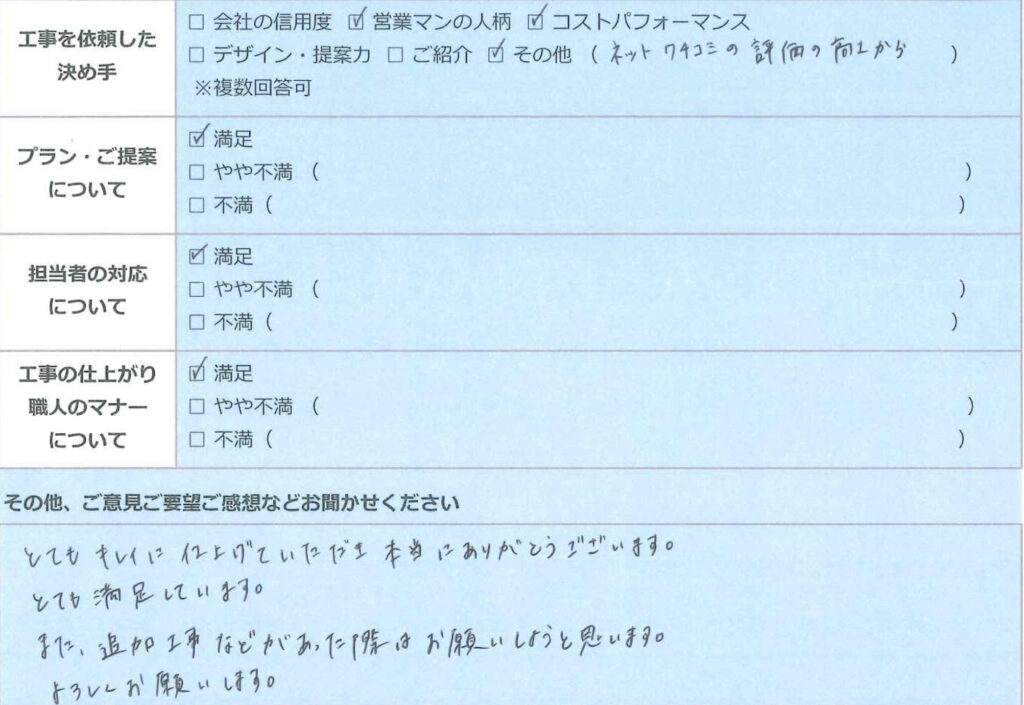 工事を依頼した
決め手
□ 会社の信用度 ☑ 営業マンの人柄 ☑ コストパフォーマンス
□ デザイン・提案力 □ ご紹介 ☑ その他 ( ネットクチコミの評価の高さから )
※複数回答可
プラン・ご提案
について
☑ 満足
□ やや不満 ( )
□ 不満 ( )
担当者の対応
について
☑ 満足
□ やや不満 ( )
□ 不満 ( )
工事の仕上がり
職人のマナー
について
☑ 満足
□ やや不満 ( )
□ 不満 ( )
その他、ご意見ご要望ご感想などお聞かせください
とてもキレイに仕上げていただき本当にありがとうございます。
とても満足しています。
また、追加工事などがあった際はお願いしようと思います。
よろしくお願いします。